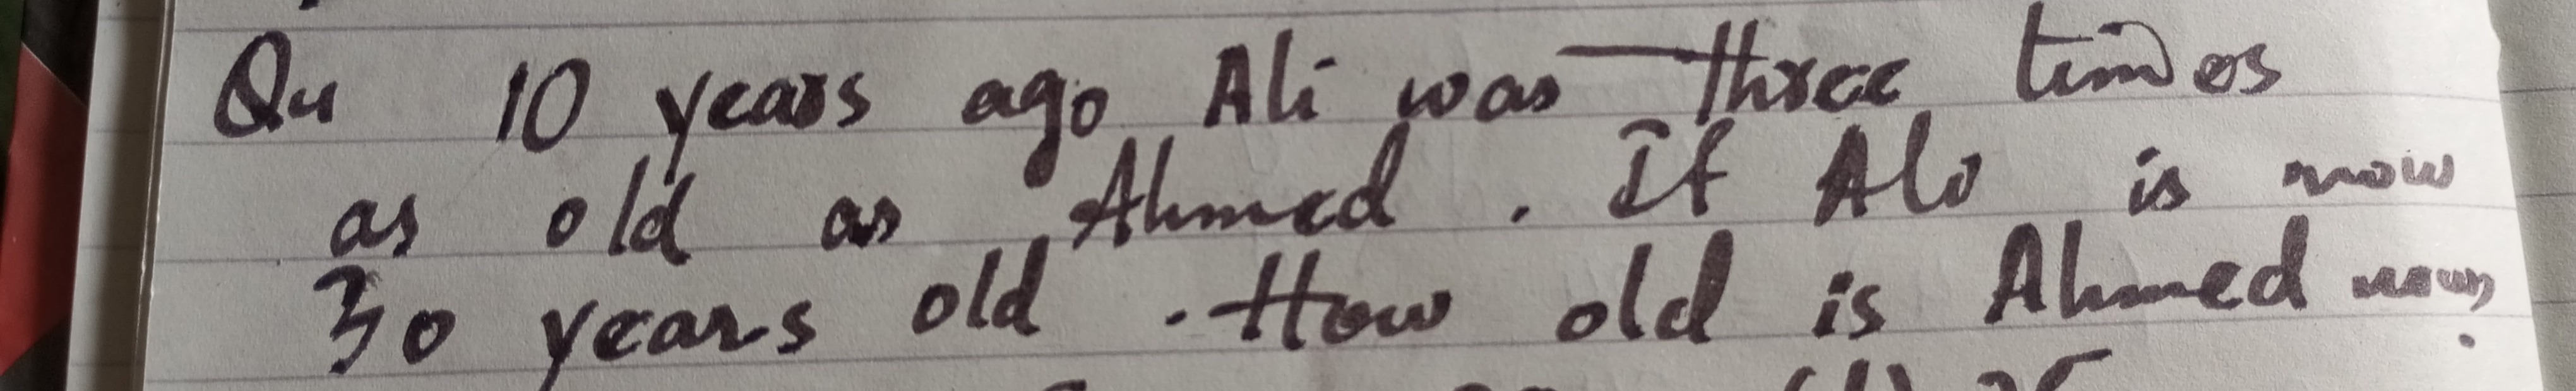 Qu 10 years ago Ali was three times
as old as Ahmed. If Ali is now
30 years old. How old is Ahmed now?